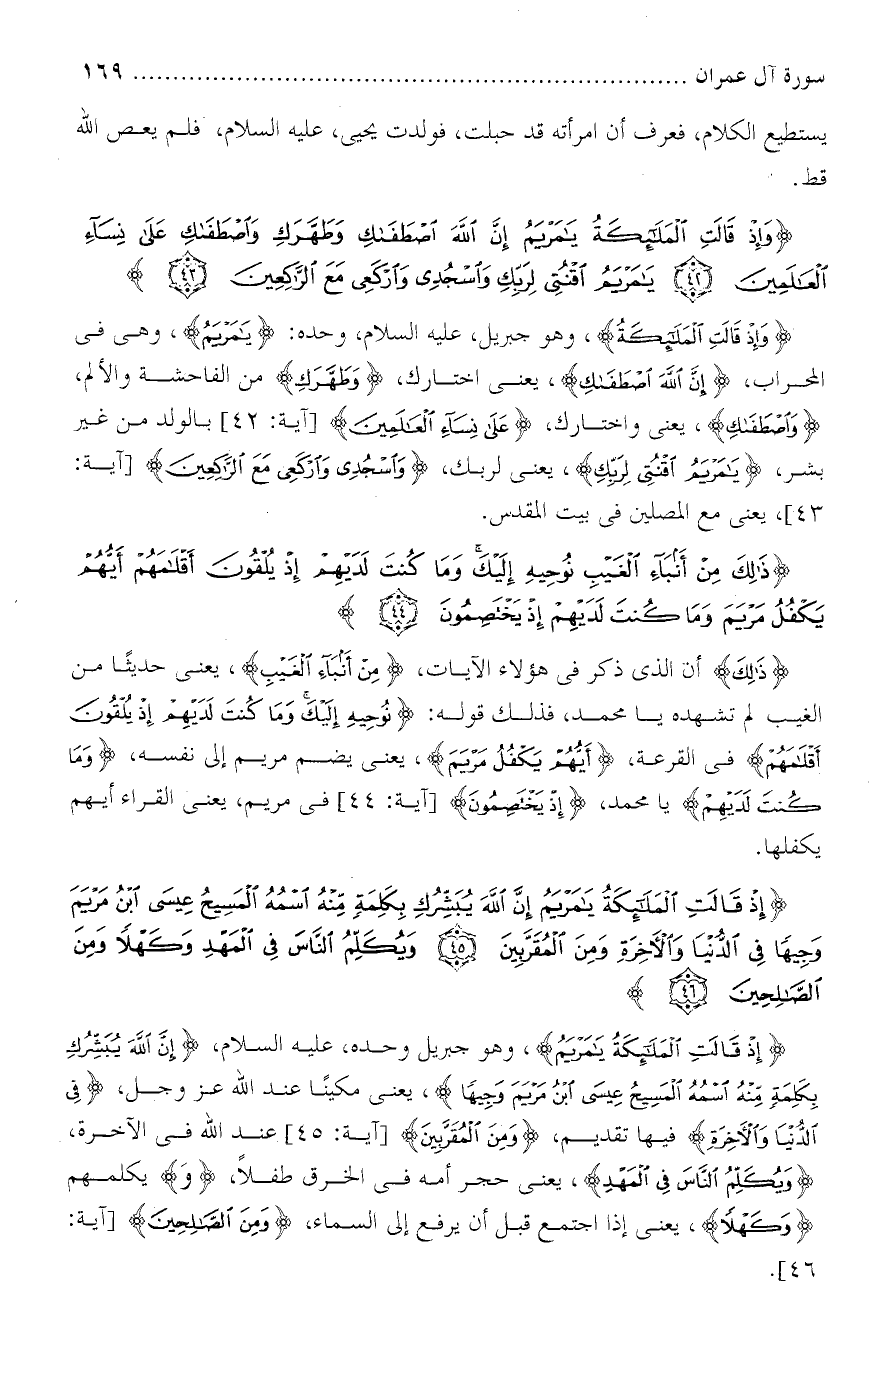 سورة آل عمران ..................................................................... ١٦٩
يستطيع الكلام، فعرف أن امرأته قد حبلت، فولدت يحيى، عليه السلام، فلم يعص الله
قط.
﴿وَإِذْ قَالَتِ ٱلْمَلَٰٓئِكَةُ يَٰمَرْيَمُ إِنَّ ٱللَّهَ ٱصْطَفَىٰكِ وَطَهَّرَكِ وَٱصْطَفَىٰكِ عَلَىٰ نِسَآءِ
ٱلْعَٰلَمِينَ ٤٢ يَٰمَرْيَمُ ٱقْنُتِى لِرَبِّكِ وَٱسْجُدِى وَٱرْكَعِى مَعَ ٱلرَّٰكِعِينَ ٤٣ ﴾
﴿وَإِذْ قَالَتِ ٱلْمَلَٰٓئِكَةُ﴾، وهو جبريل، عليه السلام، وحده: ﴿يَٰمَرْيَمُ﴾، وهى فى
المحراب، ﴿إِنَّ ٱللَّهَ ٱصْطَفَىٰكِ﴾، يعنى اختارك، ﴿وَطَهَّرَكِ﴾ من الفاحشة والألم،
﴿وَٱصْطَفَىٰكِ﴾، يعنى واختارك، ﴿عَلَىٰ نِسَآءِ ٱلْعَٰلَمِينَ﴾ [آية: ٤٢] بالولد من غير
بشر، ﴿يَٰمَرْيَمُ ٱقْنُتِى لِرَبِّكِ﴾، يعنى لربك، ﴿وَٱسْجُدِى وَٱرْكَعِى مَعَ ٱلرَّٰكِعِينَ﴾ [آية:
٤٣]، يعنى مع المصلين فى بيت المقدس.
﴿ذَٰلِكَ مِنْ أَنۢبَآءِ ٱلْغَيْبِ نُوحِيهِ إِلَيْكَ ۚ وَمَا كُنتَ لَدَيْهِمْ إِذْ يُلْقُونَ أَقْلَٰمَهُمْ أَيُّهُمْ
يَكْفُلُ مَرْيَمَ وَمَا كُنتَ لَدَيْهِمْ إِذْ يَخْتَصِمُونَ ٤٤ ﴾
﴿ذَٰلِكَ﴾ أن الذى ذكر فى هؤلاء الآيات، ﴿مِنْ أَنۢبَآءِ ٱلْغَيْبِ﴾، يعنى حديثًا من
الغيب لم تشهده يا محمد، فذلك قوله: ﴿نُوحِيهِ إِلَيْكَ ۚ وَمَا كُنتَ لَدَيْهِمْ إِذْ يُلْقُونَ
أَقْلَٰمَهُمْ﴾ فى القرعة، ﴿أَيُّهُمْ يَكْفُلُ مَرْيَمَ﴾، يعنى يضم مريم إلى نفسه، ﴿وَمَا
كُنتَ لَدَيْهِمْ﴾ يا محمد، ﴿إِذْ يَخْتَصِمُونَ﴾ [آية: ٤٤] فى مريم، يعنى القراء أيهم
يكفلها.
﴿إِذْ قَالَتِ ٱلْمَلَٰٓئِكَةُ يَٰمَرْيَمُ إِنَّ ٱللَّهَ يُبَشِّرُكِ بِكَلِمَةٍ مِّنْهُ ٱسْمُهُ ٱلْمَسِيحُ عِيسَى ٱبْنُ مَرْيَمَ
وَجِيهًا فِى ٱلدُّنْيَا وَٱلْءَاخِرَةِ وَمِنَ ٱلْمُقَرَّبِينَ ٤٥ وَيُكَلِّمُ ٱلنَّاسَ فِى ٱلْمَهْدِ وَكَهْلًا وَمِنَ
ٱلصَّٰلِحِينَ ٤٦ ﴾
﴿إِذْ قَالَتِ ٱلْمَلَٰٓئِكَةُ يَٰمَرْيَمُ﴾، وهو جبريل وحده، عليه السلام، ﴿إِنَّ ٱللَّهَ يُبَشِّرُكِ
بِكَلِمَةٍ مِّنْهُ ٱسْمُهُ ٱلْمَسِيحُ عِيسَى ٱبْنُ مَرْيَمَ وَجِيهًا ﴾، يعنى مكينًا عند الله عز وجل، ﴿فِى
ٱلدُّنْيَا وَٱلْءَاخِرَةِ﴾ فيها تقديم، ﴿وَمِنَ ٱلْمُقَرَّبِينَ﴾ [آية: ٤٥] عند الله فى الآخرة،
﴿وَيُكَلِّمُ ٱلنَّاسَ فِى ٱلْمَهْدِ﴾، يعنى حجر أمه فى الخرق طفلاً، ﴿وَ﴾ يكلمهم
﴿وَكَهْلًا﴾، يعنى إذا اجتمع قبل أن يرفع إلى السماء، ﴿وَمِنَ ٱلصَّٰلِحِينَ﴾ [آية:
٤٦].